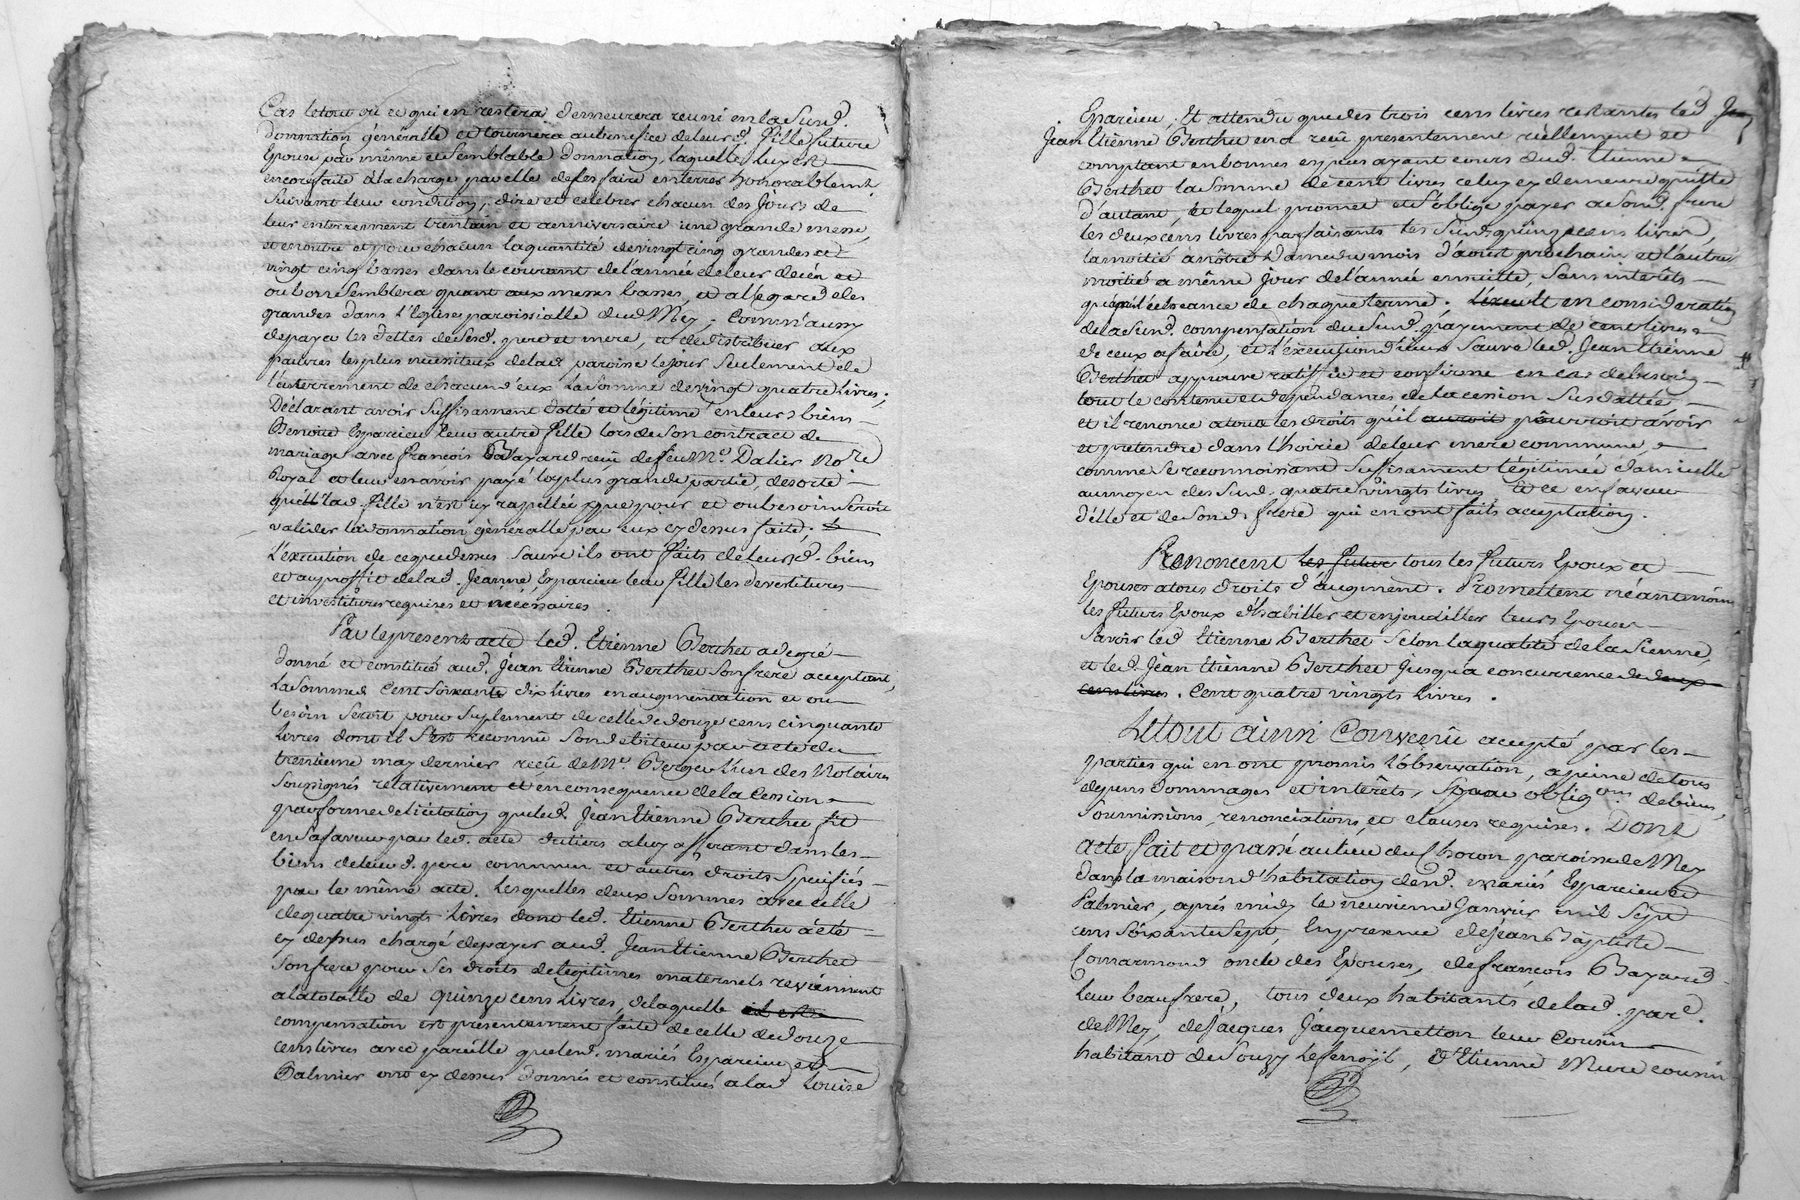 Cas letout ou ce qui en restera demeurera reuni en la Susd.
donnation généralle et tournera au benefice de leurd. fille future
Epouse par même et Semblable donnation, laquelle luy est
encor faite à la charge par elle de les faire enterrer honorablemt.
Suivant leur condition, dire et celebrer chacun des jours de
leur enterrement trentain et anniversaire une grande messe,
et en outre et pour chacun la quantité de vingt cinq grandes et
vingt cinq basses dans le courant de l'année de leur decéz et
ou bon Semblera quant aux messes basses, et a l'egard des
grandes dans l'Eglise paroissialle dud. Mey; Comm'aussy
de payer les dettes de Sesd. pere et mere, et de distribuer aux
pauvres les plus necessiteux de lad. paroisse le jour Seulement de
l'enterrement de chacun d'eux la Somme de vingt quatre Livres;
Déclarant avoir Suffisament dotté et légitimé en leurs biens
Benoite Esparcieu leur autre fille lors de Son contract de
mariage avec françois Bayard reçu de feu Me. Dalier Nore
Royal et leur en avoir payé la plus grande partie, de sorte
qu'ell' lad. fille n'est icy rappellée que pour et ou besoin Seroit
valider la donnation généralle par eux cy dessus faite;
L'execution de ce que dessus Sauve ils ont faits de leursd. biens
et au proffit de lad. Jeanne Esparcieu leur fille les devestitures
et investitures requises et nécessaires.
Par le present acte led. Etienne Berthet a de gré
donné et constitué aud. Jean Etienne Berthet Son frere acceptant,
La Somme de Cent Soixante dix Livres en augmentation et ou
besoin Seroit pour Suplement de celle de douze cens cinquante
Livres dont il S'est reconnû Son debiteur par acte du
trentieme may dernier reçu de Me. Berger l'un des Notaires
Soussignés relativement et en consequence de la Cession
par forme de licitation que led. Jean Etienne Berthet fit
en Sa faveur par led. acte du tiers a luy afferant dans les
biens de leurd. pere commun et autres droits Specifiés
par le même acte. Lesquelles deux Sommes avec celle
de quatre vingts Livres dont led. Etienne Berthet a été
cy dessus chargé de payer aud. Jean Etienne Berthet
Son frere pour Ses droits de legitimes maternels reviennent
a la totalle de quinze cens Livres, de laquelle il est
compensation est presentement faite de celle de douze
cens livres avec pareille que lesd. mariés Esparcieu et
Palmier ont cy dessus donnés et constitués a lad. Louise
Esparcieu, Et attendu que des trois cens livres restantes led. Jean
Jean Etienne Berthet en a reçu presentement réellement et
comptant en bonnes especes ayant cours dud. Etienne
Berthet la Somme de cent livres celuy cy demeure quitte
d'autant, et lequel promet et S'oblige payer a Sond. frere
les deux cens livres parfaisants les Susd. quinze cens livres,
la moitié a nôtre dame du mois d'aoust prochain et l'autre
moitié a même jour de l'année ensuitte, Sans interets
qu'apr. l'écheance de chaque terme. L'exeult en consideration
de la Susd. compensation du Susd. payement de cent livres
de ceux a faire, et l'execution d'iceux Sauve led. Jean Etienne
Berthet approuve ratiffie et confirme en cas de besoin
tout le contenu et dependances de la cession Susdattée
et il renonce a tous les droits qu'il auroit pourroit avoir
et pretendre dans l'hoirie de leur mere commune,
comme Se reconnoissant Suffisament légitimé dans icelle
au moyen des Susd. quatre vingts livres et ce en faveur
d'elle et de Sond. frere qui en ont faits acceptation.
Renoncent les futur tous les futurs Epoux et
Epouses a tous droits d'augment. Promettent néantmoins
les futurs Epoux d'habiller et enjouailler leurs Epouses
Savoir led. Etienne Berthet Selon la qualité de la Sienne,
et led. Jean Etienne Berthet jusqu'a concurrence de deux
cens livres. Cent quatre vingts livres.
Letout ainsi Convenû accepté par les
parties qui en ont promis l'observation, a peine de tous
depens dommages et interêts, par obligons. de biens,
Soumissions, renonciations, et clauses requises. Dont
acte fait et passé au lieu du Choron paroisse de Mey
dans la maison d'habitation desd. mariés Esparcieu et
Palmier, aprés midy le neuvieme Janvier mil Sept
cens Soixante Sept, En presence de Jean Baptiste
Comarmond oncle des Epouses, de françois Bayard
leur beaufrere, tous deux habitants de lad. pare.
de Mey, de Jacques Jacquemetton leur Cousin
habitant de Souzy Lefenoÿl, d'Etienne Mure cousin